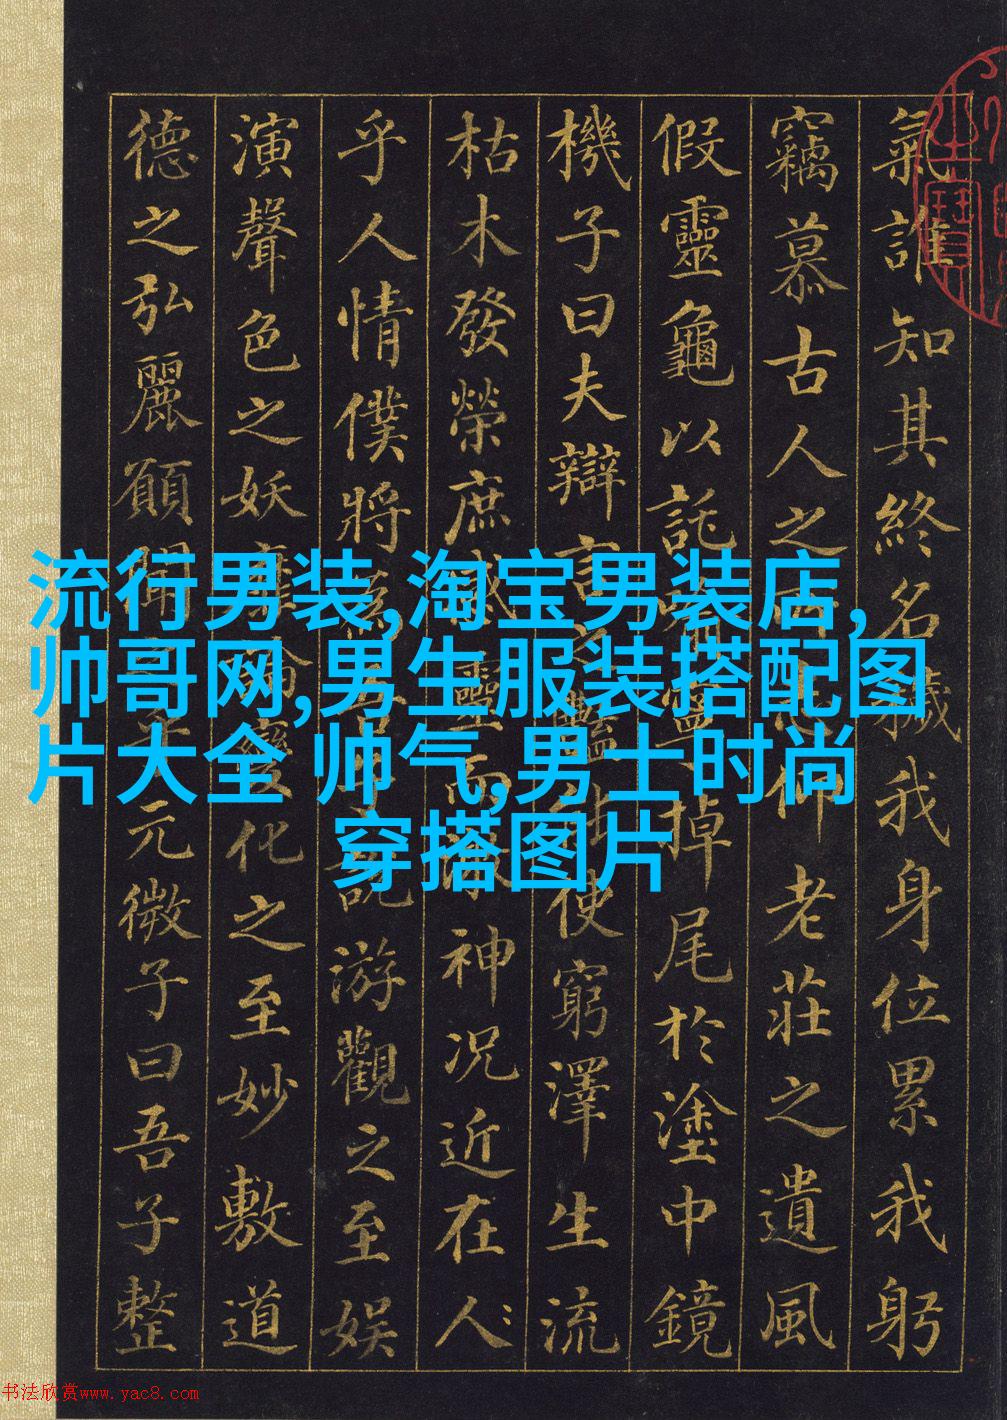 氣誰知其終名穢我身位累我躬
竊慕古人之所志仰老莊之遺風
假靈龜以託喻寧掉尾於塗中鏡
機子曰夫辯言之豔能使窮澤生流
枯木發榮庶感靈而激神況近在人
乎人情僕將為吾子說游觀之至娛
演聲色之妖靡論變化之至妙敷道
德之弘麗願聞之乎元微子曰吾子整
流行男装,淘宝男装店,
帅哥网,男生服装搭配图
片大全 帅气,男士时尚
穿搭图片
书法欣赏www.yac8.com